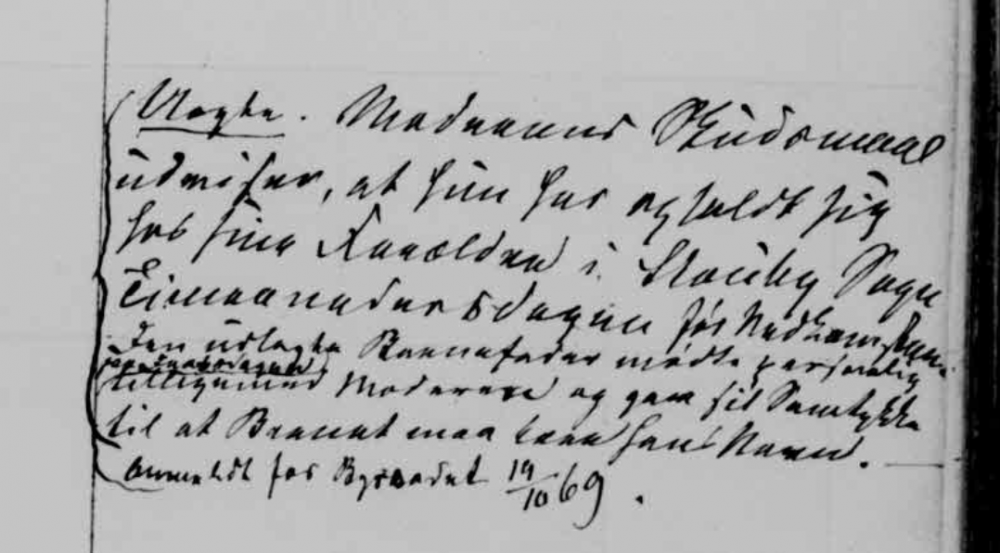 Uægte. Moderens Skudsmaal
udviser, at hun har opholdt sig
hos sine Forældre i Stouby Sogn
Timaanedersdagen før Nedkomsten.
Den udlagte Barnefader mødte personlig
tilligemed Moderen og gav sit Samtykke
til at Barnet maa bære hans Navn.
Anmeldt for Byraadet 19/10 69.